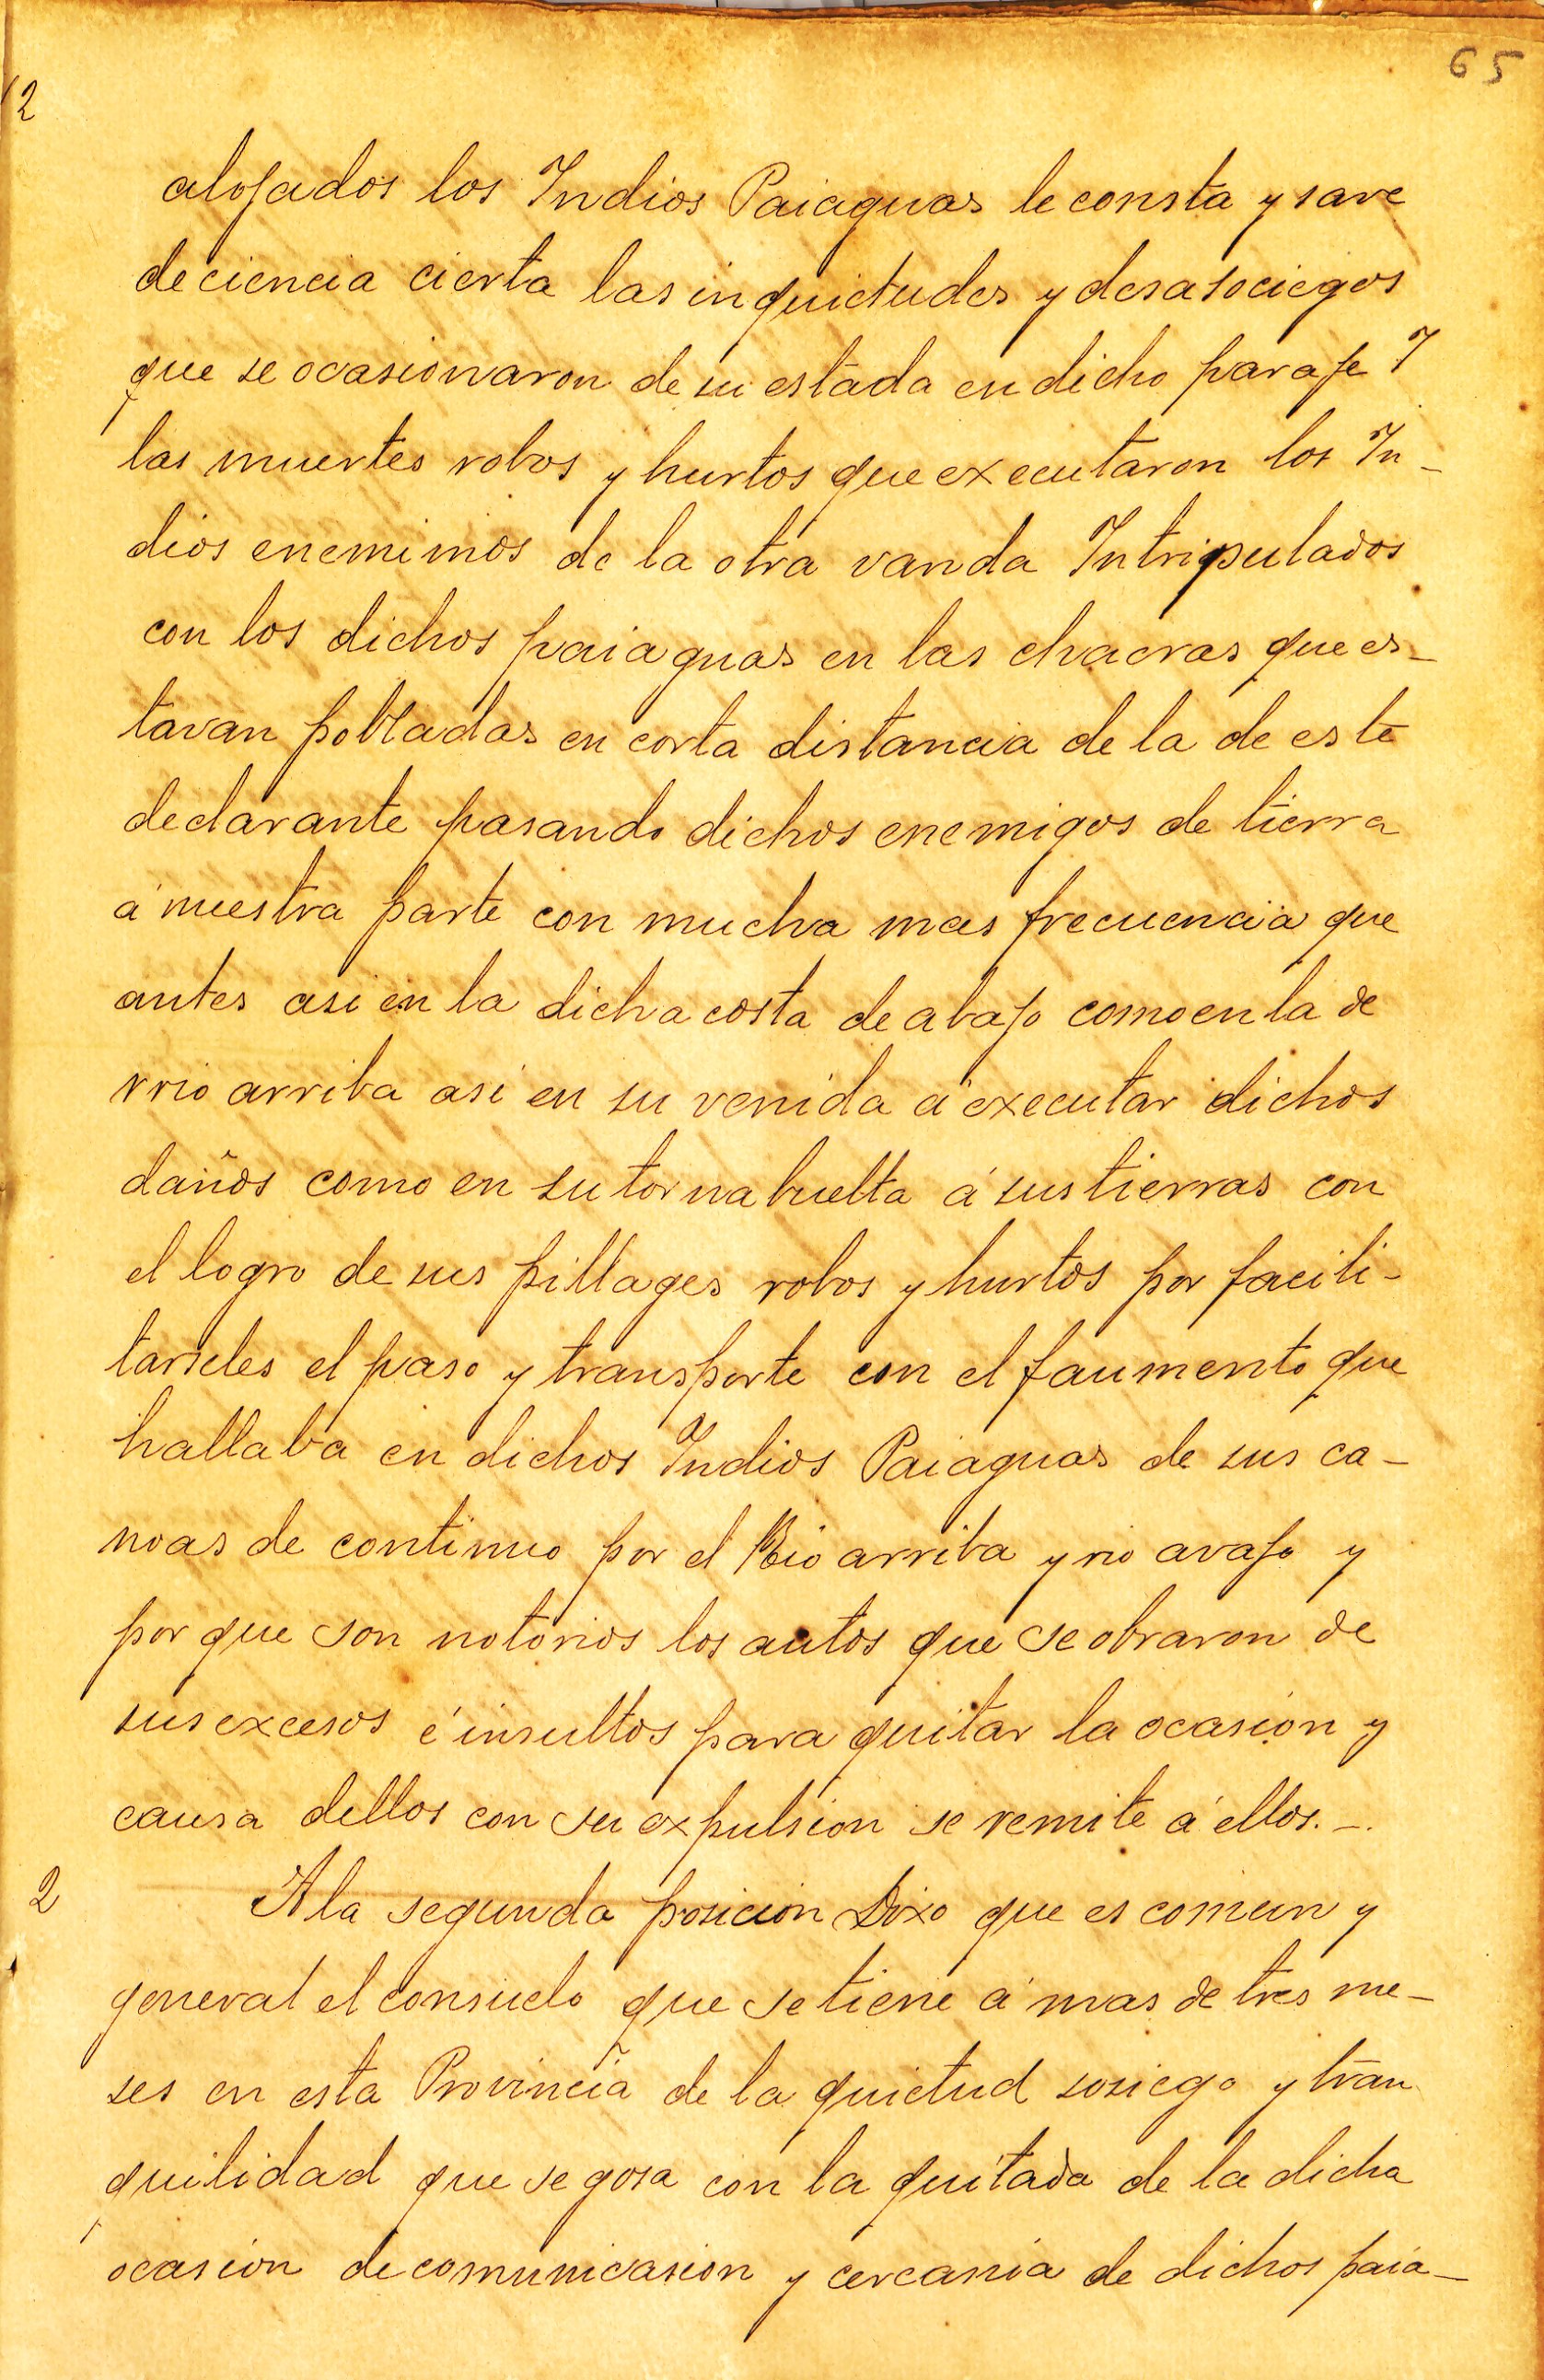 65
12
alojados los Indios Paiaguas le consta y save
de ciencia cierta las inquietudes y desasociegos
que se ocasionaron de su estada en dicho paraje Y
las muertes robos y hurtos que executaron los In-
dios enemimos de la otra vanda Intripulados
con los dichos paiaguas en las chacras que es-
tavan pobladas en corta distancia de la de este
declarante pasando dichos enemigos de tierra
á nuestra parte con mucha mas frecuencia que
antes asi en la dicha costa de abajo como en la de
rrio arriba asi en su venida á executar dichos
daños como en su tornabuelta á sus tierras con
el logro de sus pillages robos y hurtos por facili-
tarseles el paso y transporte con el faumento que
hallaba en dichos Indios Paiaguas de sus ca-
noas de continuo por el Rio arriba y rio avajo y
por que son notorios los autos que se obraron de
sus excesos é insultos para quitar la ocasion y
causa dellos con su expulsion se remite á ellos.-.
2 A la segunda posicion Dixo que es comun y
general el consuelo que se tiene á mas de tres me-
ses en esta Provincia de la quietud sosiego y tran
quilidad que se gosa con la quitada de la dicha
ocasion de comunicasion y cercania de dichos paia-